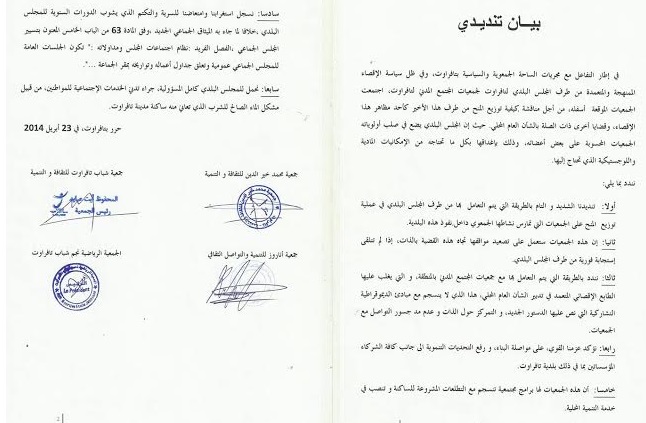 بيـــان تنديـــدي
في إطار التفاعل مع مجريات الساحة الجمعوية والسياسية بتافراوت، وفي ظل سياسة الإقصاء
الممنهجة والمتعمدة من طرف المجلس البلدي لتافراوت لجمعيات المجتمع المدني لتافراوت، اجتمعت
الجمعيات الموقعة أسفله، من أجل مناقشة كيفية توزيع المنح من طرف هذا الأخير كأحد مظاهر هذا
الإقصاء، وقضايا أخرى ذات الصلة بالشأن العام المحلي. حيث إن المجلس البلدي يضع في صلب أولوياته
الجمعيات المحسوبة على بعض أعضائه، وذلك بإغداقها بكل ما تحتاجه من الإمكانيات المادية
واللوجستيكية الذي تحتاج إليها.
نندد بما يلي:
أولا: تنديدنا الشديد و التام بالطريقة التي يتم التعامل بها من طرف المجلس البلدي في عملية
توزيع المنح على الجمعيات التي تمارس نشاطها الجمعوي داخل نفوذ هذه البلدية.
ثانيا: إن هذه الجمعيات ستعمل على تصعيد مواقفها تجاه هذه القضية بالذات، إذا لم تتلقى
إستجابة فورية من طرف المجلس البلدي.
ثالثا: نندد بالطريقة التي يتم التعامل بها مع جمعيات المجتمع المدني بالمنطقة، و التي يغلب عليها
الطابع الإقصائي المتعمد في تدبير الشأن العام المحلي، هذا الذي لا ينسجم مع مبادئ الديموقراطية
التشاركية التي نص عليها الدستور الجديد، و التمركز حول الذات و عدم مد جسور التواصل مع
الجمعيات.
رابعا: نؤكد عزمنا القوي، على مواصلة البناء، و رفع التحديات التنموية الى جانب كافة الشركاء
المؤسساتين بما في ذلك بلدية تافراوت.
خامسا: أن هذه الجمعيات لها برامج مجتمعية تنسجم مع التطلعات المشروعة للساكنة و تنصب في
خدمة التنمية المحلية.
سادسا: نسجل استغرابنا وامتعاضنا للسرية والتكتم الذي يشوب الدورات السنوية للمجلس
البلدي ،خلافا لما جاء به الميثاق الجماعي الجديد ،وفق المادة 63 من الباب الخامس المعنون بتسيير
المجلس الجماعي ،الفصل الفريد :نظام اجتماعات المجلس ومداولاته :" تكون الجلسات العامة
للمجلس الجماعي عمومية وتعلق جداول أعماله وتواريخه بمقر الجماعة ...".
سابعا: نحمل للمجلس البلدي كامل المسؤولية، جراء تدني الخدمات الإجتماعية للمواطنين، من قبيل
مشكل الماء الصالح للشرب الذي تعاني منه ساكنة مدينة تافراوت.
حرر بتافراوت، في 23 أبريل 2014
جمعية محمد خير الدين للثقافة و التنمية
جمعية شباب تافراوت للثقافة و التنمية
رئيس الجمعية
جمعية أناروز للتنمية والتواصل الثقافي
الجمعية الرياضية نجم شباب تافراوت
الرئيس
Le Président